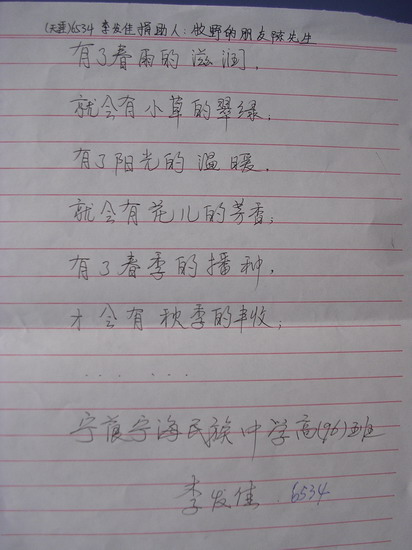 (天涯)6534 李发佳 捐助人:牧野的朋友陈先生
有了春雨的滋润,
就会有小草的翠绿;
有了阳光的温暖,
就会有花儿的芳香;
有了春季的播种,
才会有秋季的丰收;
... ...
宁蒗宁海民族中学高(96)班
李发佳 6534